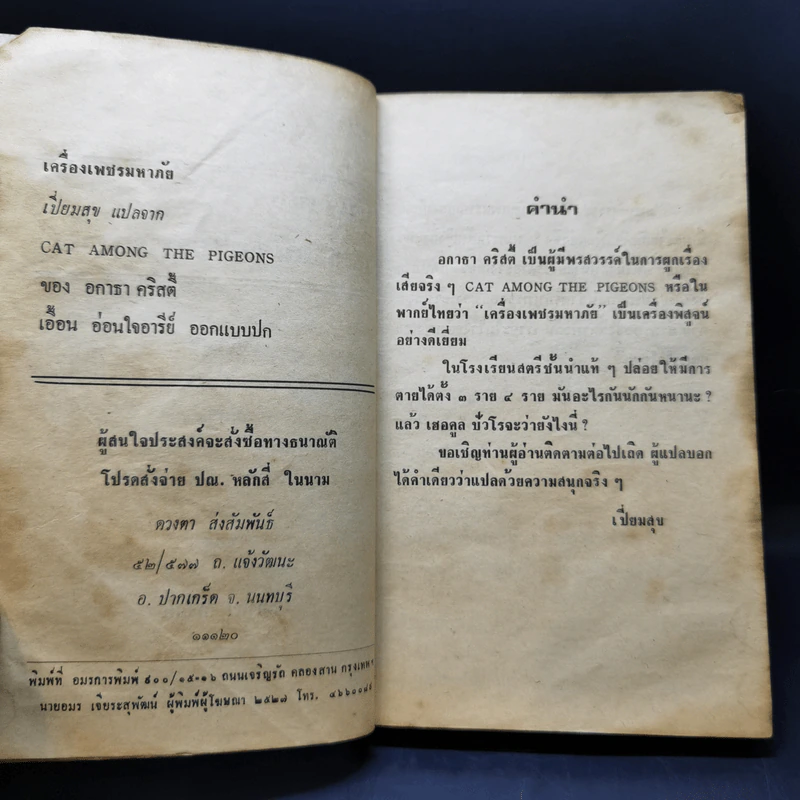 เครื่องเพชรมหาภัย
เปี่ยมสุข แปลจาก
CAT AMONG THE PIGEONS
ของ อกาธา คริสตี้
เอื้อน อ่อนใจอารีย์ ออกแบบปก
ผู้สนใจประสงค์จะสั่งซื้อทางธนาณัติ
โปรดสั่งจ่าย ปณ. หลักสี่ ในนาม
ดวงตา ส่งสัมพันธ์
๕๒/๕๗๗ ถ. แจ้งวัฒนะ
อ. ปากเกร็ด จ. นนทบุรี
๑๑๑๒๐
พิมพ์ที่ อมรการพิมพ์ ๙๐๐/๑๕-๑๖ ถนนเจริญรัถ คลองสาน กรุงเทพ ฯ
นายอมร เจียระสุพัฒน์ ผู้พิมพ์ผู้โฆษณา ๒๕๒๗ โทร.
คำนำ
อกาธา คริสตี้ เป็นผู้มีพรสวรรค์ในการผูกเรื่อง
เสียจริง ๆ CAT AMONG THE PIGEONS หรือใน
พากย์ไทยว่า “เครื่องเพชรมหาภัย” เป็นเครื่องพิสูจน์
อย่างดีเยี่ยม
ในโรงเรียนสตรีชั้นนำแท้ ๆ ปล่อยให้มีการ
ตายได้ตั้ง ๓ ราย ๔ ราย มันอะไรกันนักกันหนานะ ?
แล้ว เฮอคูล ปัวโรจะว่ายังไงนี่ ?
ขอเชิญท่านผู้อ่านติดตามต่อไปเถิด ผู้แปลบอก
ได้คำเดียวว่าแปลด้วยความสนุกจริง ๆ
เปี่ยมสุข